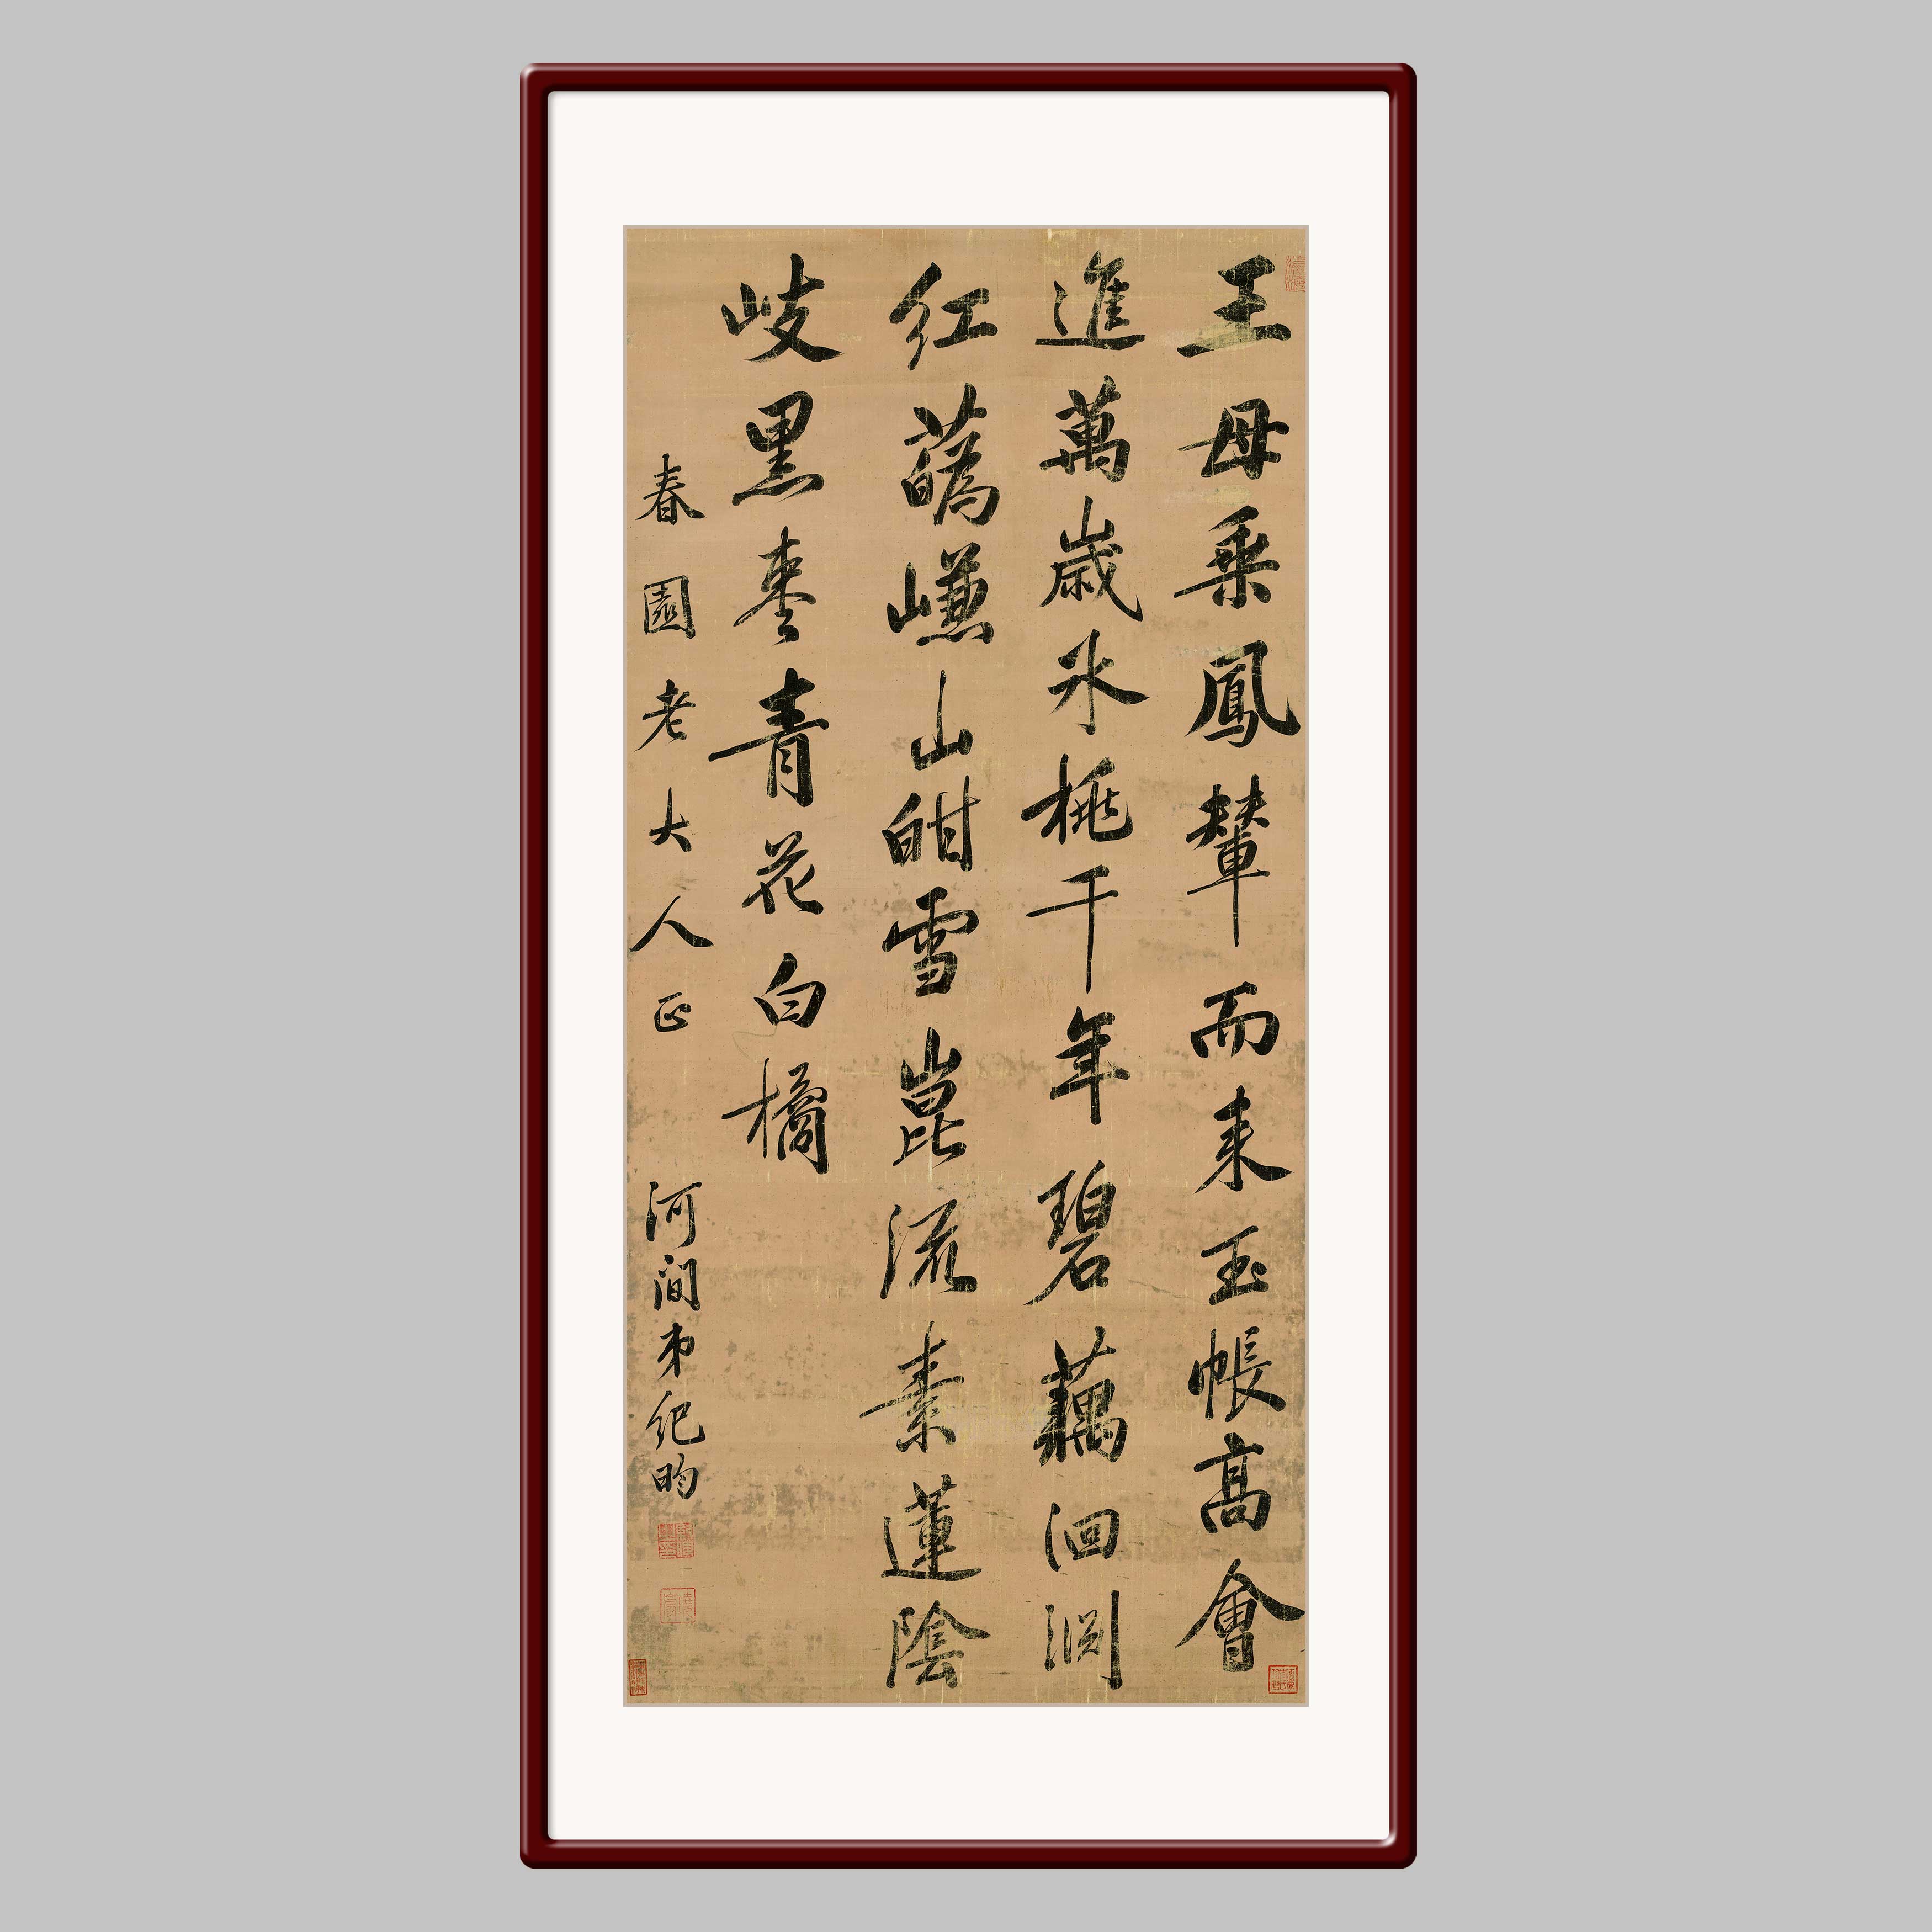 王母乗鳳輦而来玉帳高會
進萬歲氷桃千年碧藕洄淵
紅蘤嵰山甜雪崑流素蓮陰
岐黑棗青花白橘
春園老大人正
河間弟紀昀